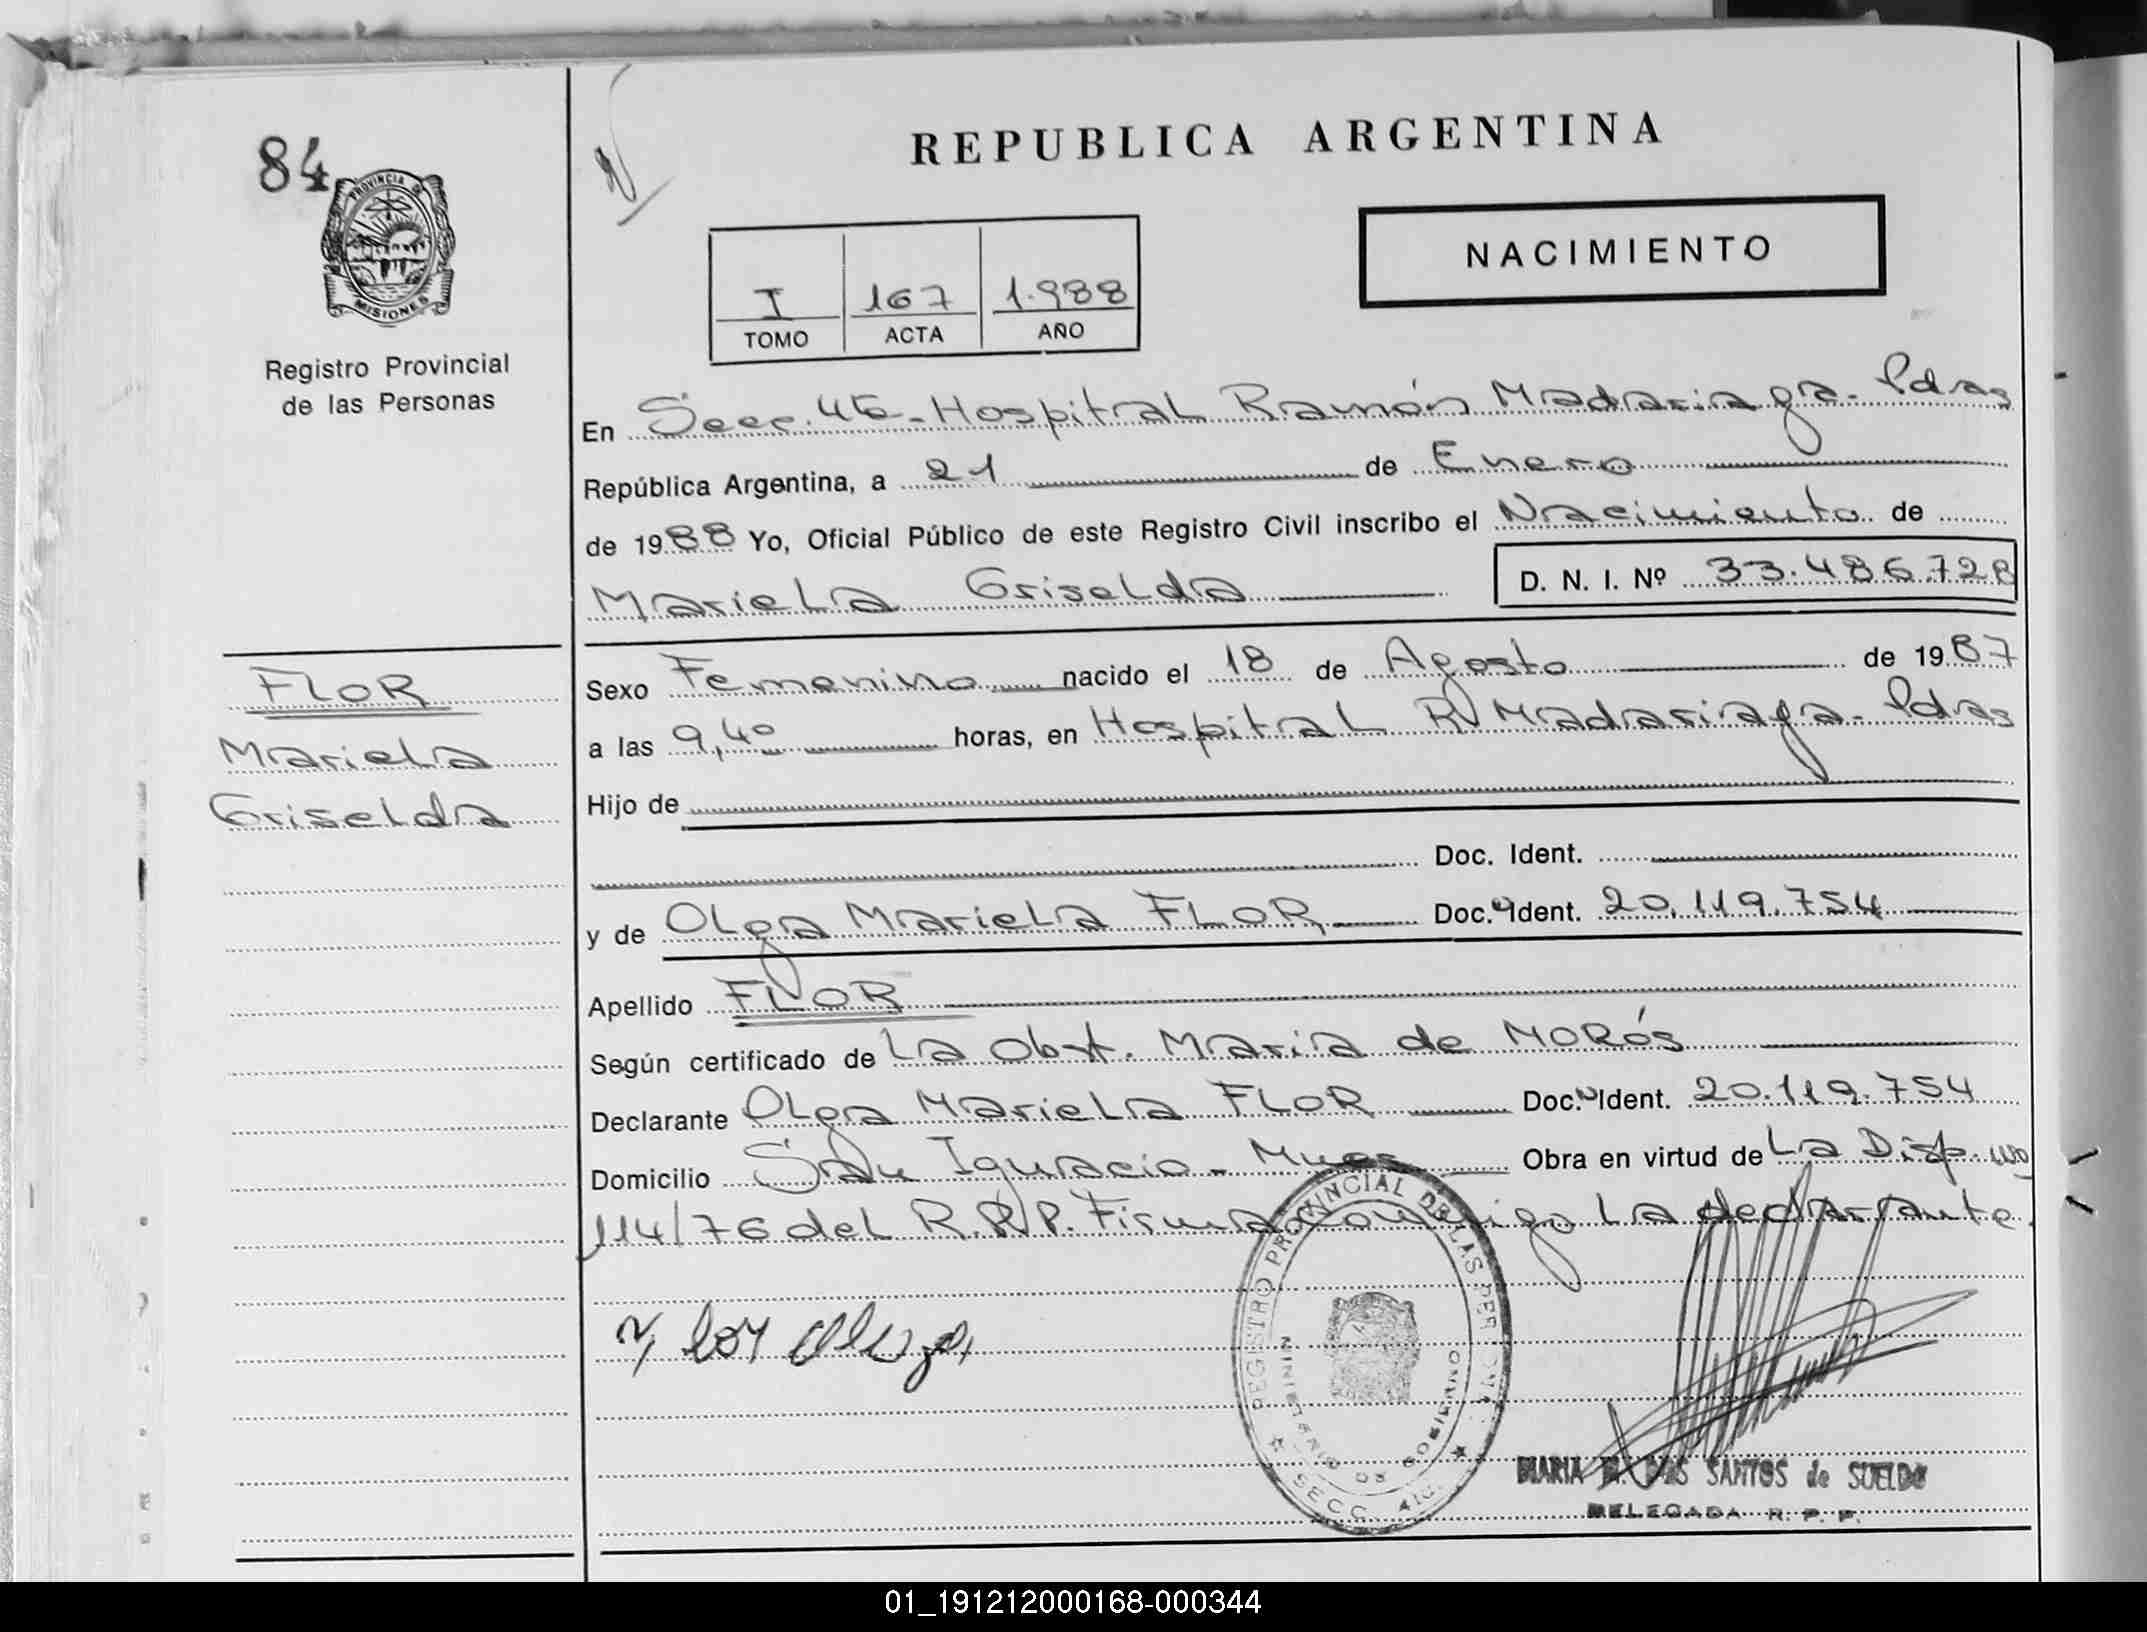 84
PROVINCIA DE
MISIONES
Registro Provincial
de las Personas
REPUBLICA ARGENTINA
NACIMIENTO
I 167 1.988
TOMO ACTA AÑO
En Secc. 4ta- Hospital Ramón Madariaga- Pdas
República Argentina, a 21 de Enero
de 1988 Yo, Oficial Público de este Registro Civil inscribo el Nacimiento de
Mariela Griselda D. N. I. Nº 33.486.728
FLOR
Mariela
Griselda
Sexo Femenino nacido el 18 de Agosto de 1987
a las 9,40 horas, en Hospital R. Madariaga- Pdas
Hijo de
Doc. Ident.
y de Olga Mariela FLOR Doc. Ident. 20.119.754
Apellido FLOR
Según certificado de La Obst. Maria de MORós
Declarante Olga Mariela FLOR Doc. Ident. 20.119.754
Domicilio San Ignacio- Mnes Obra en virtud de La Disp. no
114/76 del R.P.P. Firma conmigo La declarante.
REGISTRO PROVINCIAL DE LAS PERSONAS
MINISTERIO DE GOBIERNO
SECC. 4ta.
MARIA DOS SANTOS de SUELDO
DELEGADA R. P. P.
01_191212000168-000344